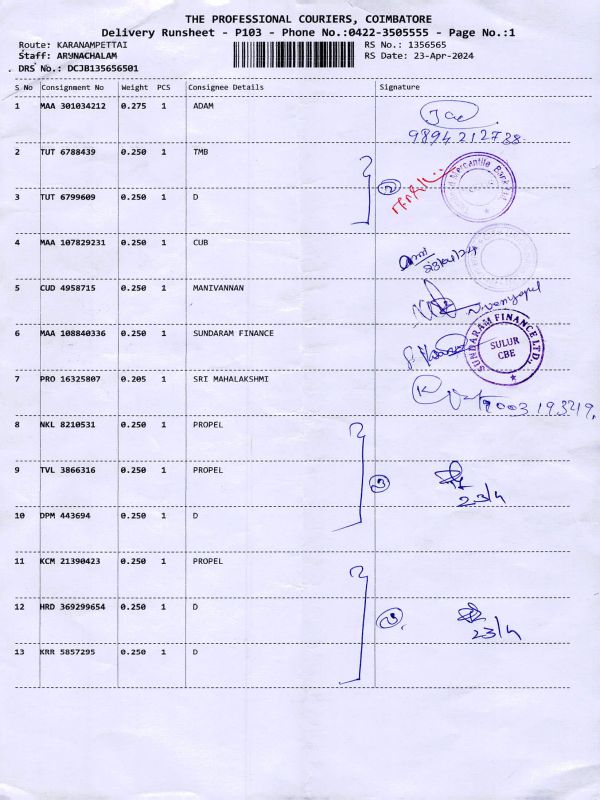 THE PROFESSIONAL COURIERS, COIMBATORE
Delivery Runsheet - P103 - Phone No.:0422-3505555 - Page No.:1
Route: KARANAMPETTAI RS No.: 1356565
Staff: ARUNACHALAM RS Date: 23-Apr-2024
DRS No.: DCJB135656501
S No Consignment No Weight PCS Consignee Details Signature
1 MAA 301034212 0.275 1 ADAM
9894212738
2 TUT 6788439 0.250 1 TMB
3 TUT 6799609 0.250 1 D
2
Mercantile Bank
4 MAA 107829231 0.250 1 CUB
23/04/24
5 CUD 4958715 0.250 1 MANIVANNAN
6 MAA 108840336 0.250 1 SUNDARAM FINANCE
SUNDARAM FINANCE LTD.,
SULUR
CBE
7 PRO 16325807 0.205 1 SRI MAHALAKSHMI
9003193219
8 NKL 8210531 0.250 1 PROPEL
9 TVL 3866316 0.250 1 PROPEL
3
23/4
10 DPM 443694 0.250 1 D
11 KCM 21390423 0.250 1 PROPEL
12 HRD 369299654 0.250 1 D
3
23/4
13 KRR 5857295 0.250 1 D